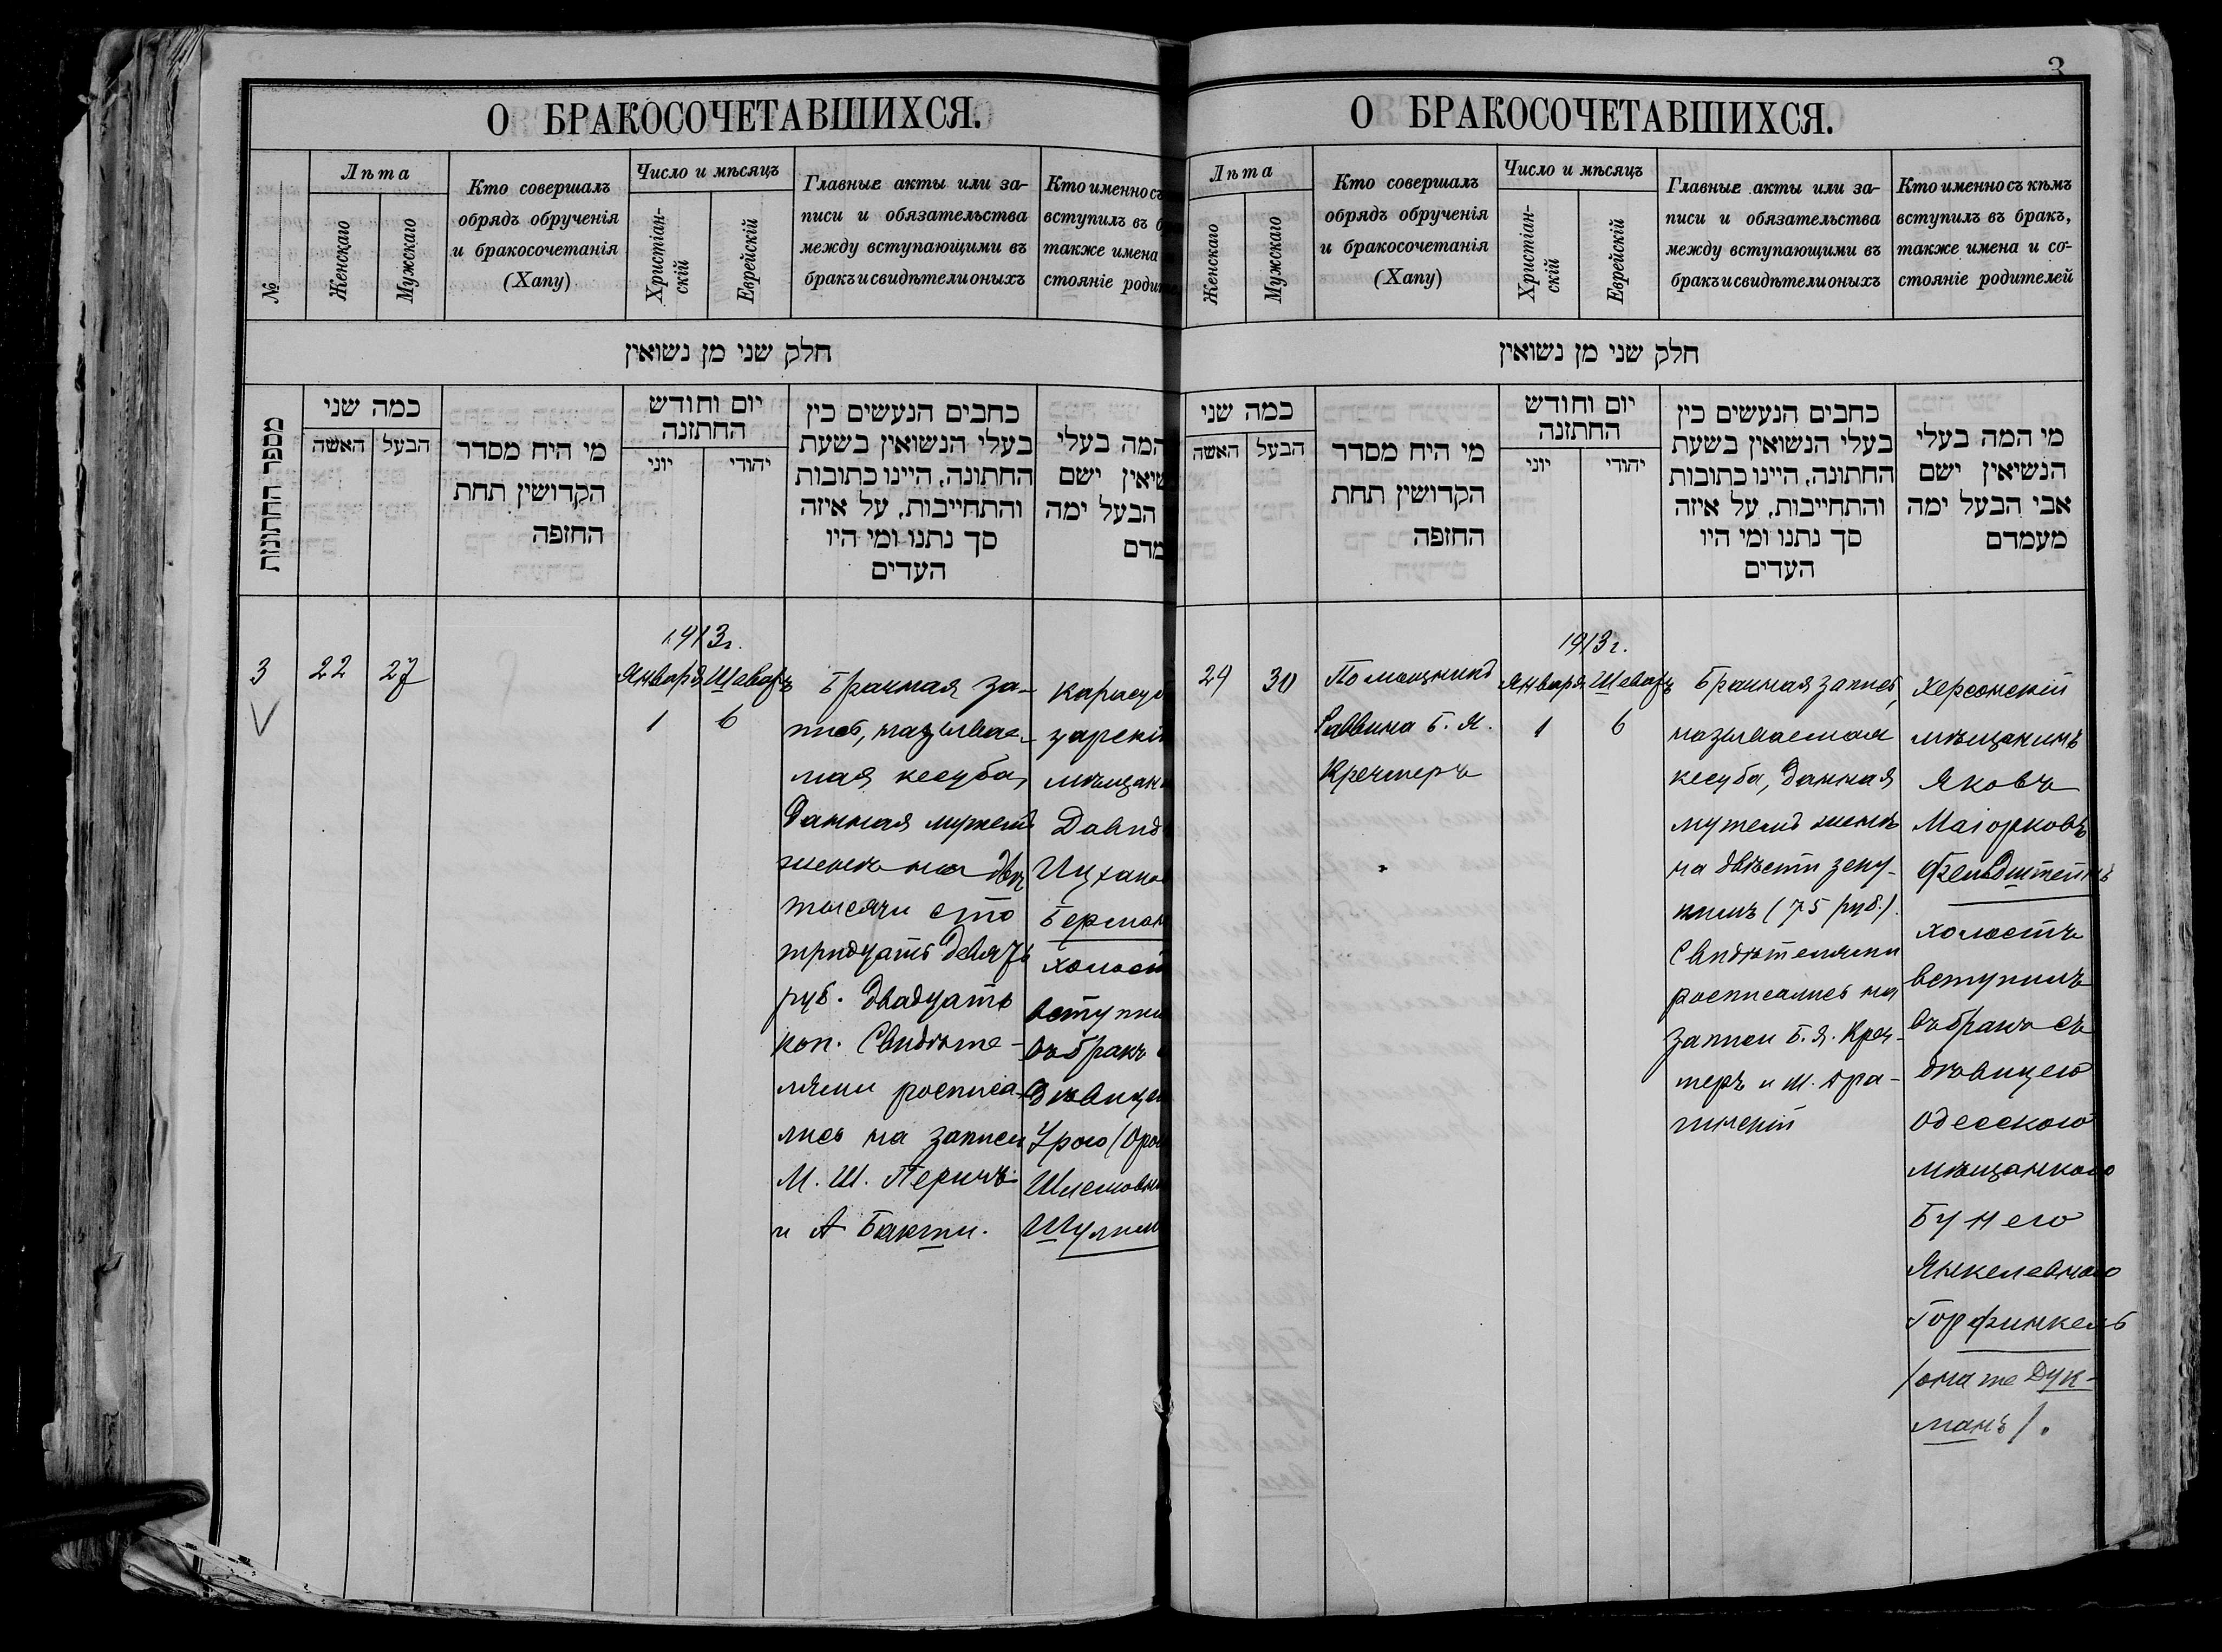 О БРАКОСОЧЕТАВШИХСЯ.
№
Лѣта
Женскаго
Мужскаго
Кто совершалъ
обрядъ обрученія
и бракосочетанія
(Хапу)
Число и мѣсяцъ
Христіан-
скій
Еврейскій
Главные акты или за-
писи и обязательства
между вступающими въ
бракъ и свидѣтели оныхъ
Кто именно съ
вступилъ въ б
также имена
стояніе родите
חלק שני מן נשואין
מספר החתונות
כמה שני
האשה
הבעל
מי היח מסדר
הקדושין תחת
החזפה
יום וחודש
החתזנה
יוני
יהודי
כחבים הנעשים כין
בעלי הנשואין בשעת
החתונה, היינו כתובות
והתחייבות, על איזה
סך נתנו ומי היו
העדים
המה בעלי
שיאין ישם
הבעל ימה
מדם
3
22
27
1913г.
Января
1
Шеватъ
6
Брачная за-
пись, называе-
мая кесуба,
данная мужемъ
женѣ на двѣ
тысячи сто
тридцать девять
руб. двадцать
коп. Свидѣте-
лями росписа-
лись на записи
М. Ш. Перичъ
и А Бакши.
Карасуб
зарскій
мѣщани
Давидъ
Ицхаков
Берман
холост
вступи
въ бракъ
дѣвице
Урою (Оро
Шлемовн
Шулим
3
О БРАКОСОЧЕТАВШИХСЯ.
Лѣта
Женскаго
Мужскаго
Кто совершалъ
обрядъ обрученія
и бракосочетанія
(Хапу)
Число и мѣсяцъ
Христіан-
скій
Еврейскій
Главные акты или за-
писи и обязательства
между вступающими въ
бракъ и свидѣтели оныхъ
Кто именно съ кѣмъ
вступилъ въ бракъ,
также имена и со-
стояніе родителей
חלק שני מן נשואין
כמה שני
האשה
הבעל
מי היח מסדר
הקדושין תחת
החזפה
יום וחודש
החתזנה
יוני
יהודי
כחבים הנעשים כין
בעלי הנשואין בשעת
החתונה, היינו כתובות
והתחייבות, על איזה
סך נתנו ומי היו
העדים
מי המה בעלי
הנשיאין ישם
אבי הבעל ימה
מעמדם
24
30
Помощникъ
Раввина Б. Я.
Кречмеръ
1913г.
Января
1
Шеватъ
6
Брачная запись,
называемая
кесуба, данная
мужемъ женѣ
на двѣсти зеку-
кимъ (75 руб.).
Свидѣтелями
росписались на
записи Б. Я. Креч-
меръ и М. Ара-
чинскій
Херсонскій
мѣщанинъ
Яковъ
Маіорковъ
Фельдштейнъ
холостъ
вступилъ
въ бракъ съ
дѣвицею
одесскою
мѣщанкою
Бунею
Янкелевною
Горфинкель
(она же Дук-
манъ).